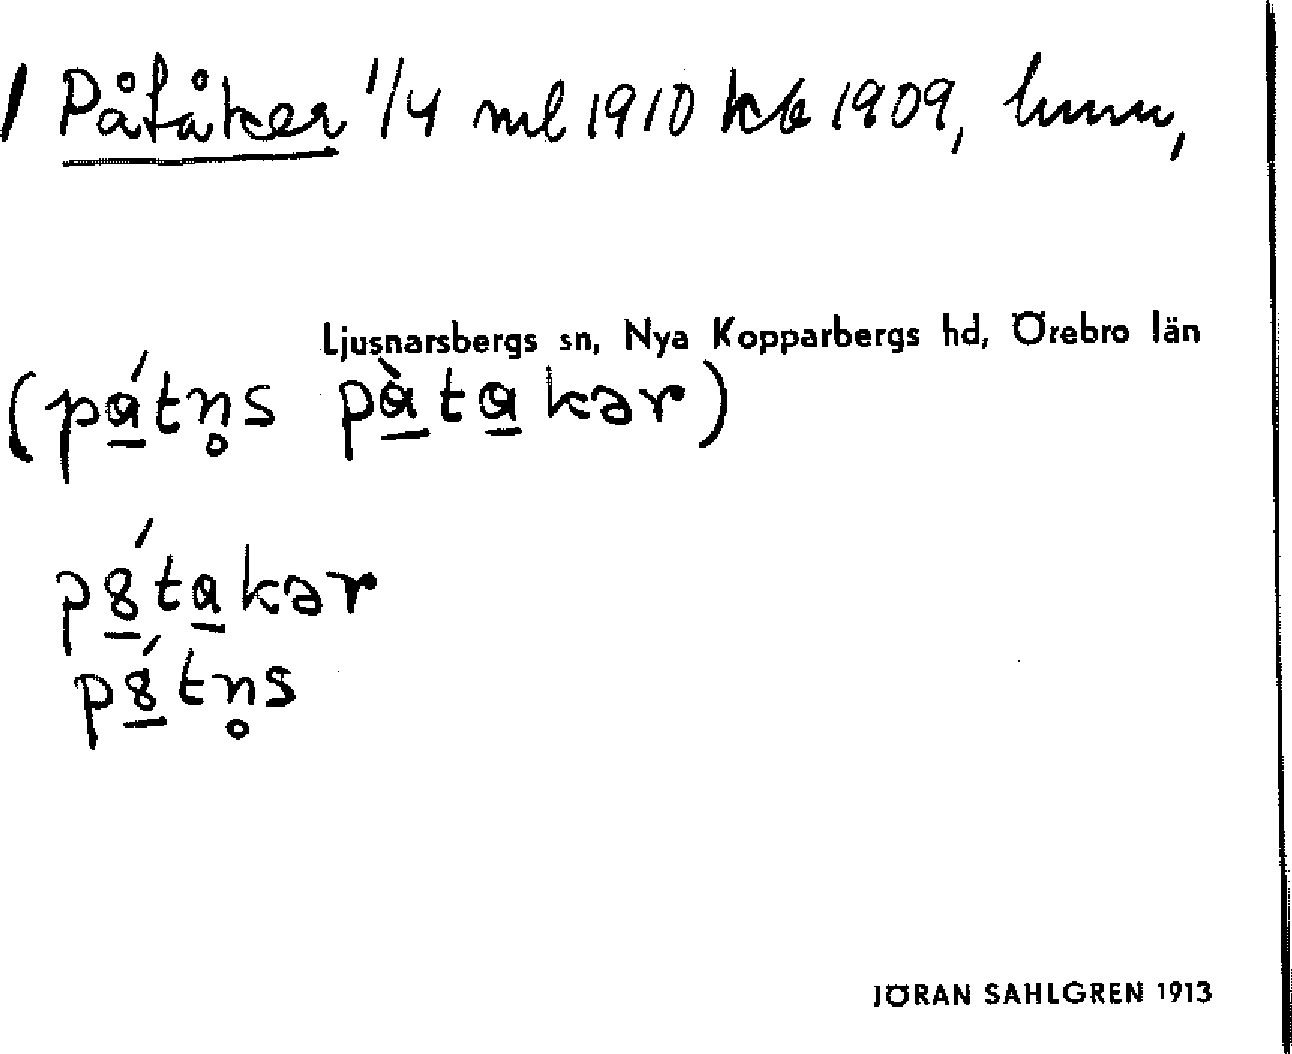 / Påtåker 1/4 ml 1910 kb 1909, hmn,
Ljusnarsbergs sn, Nya Kopparbergs hd, Örebro län
(pá̲tn̥s pà̲ta̲kər)
p8̲́ta̲kər
p8̲́tn̥s
JÖRAN SAHLGREN 1913